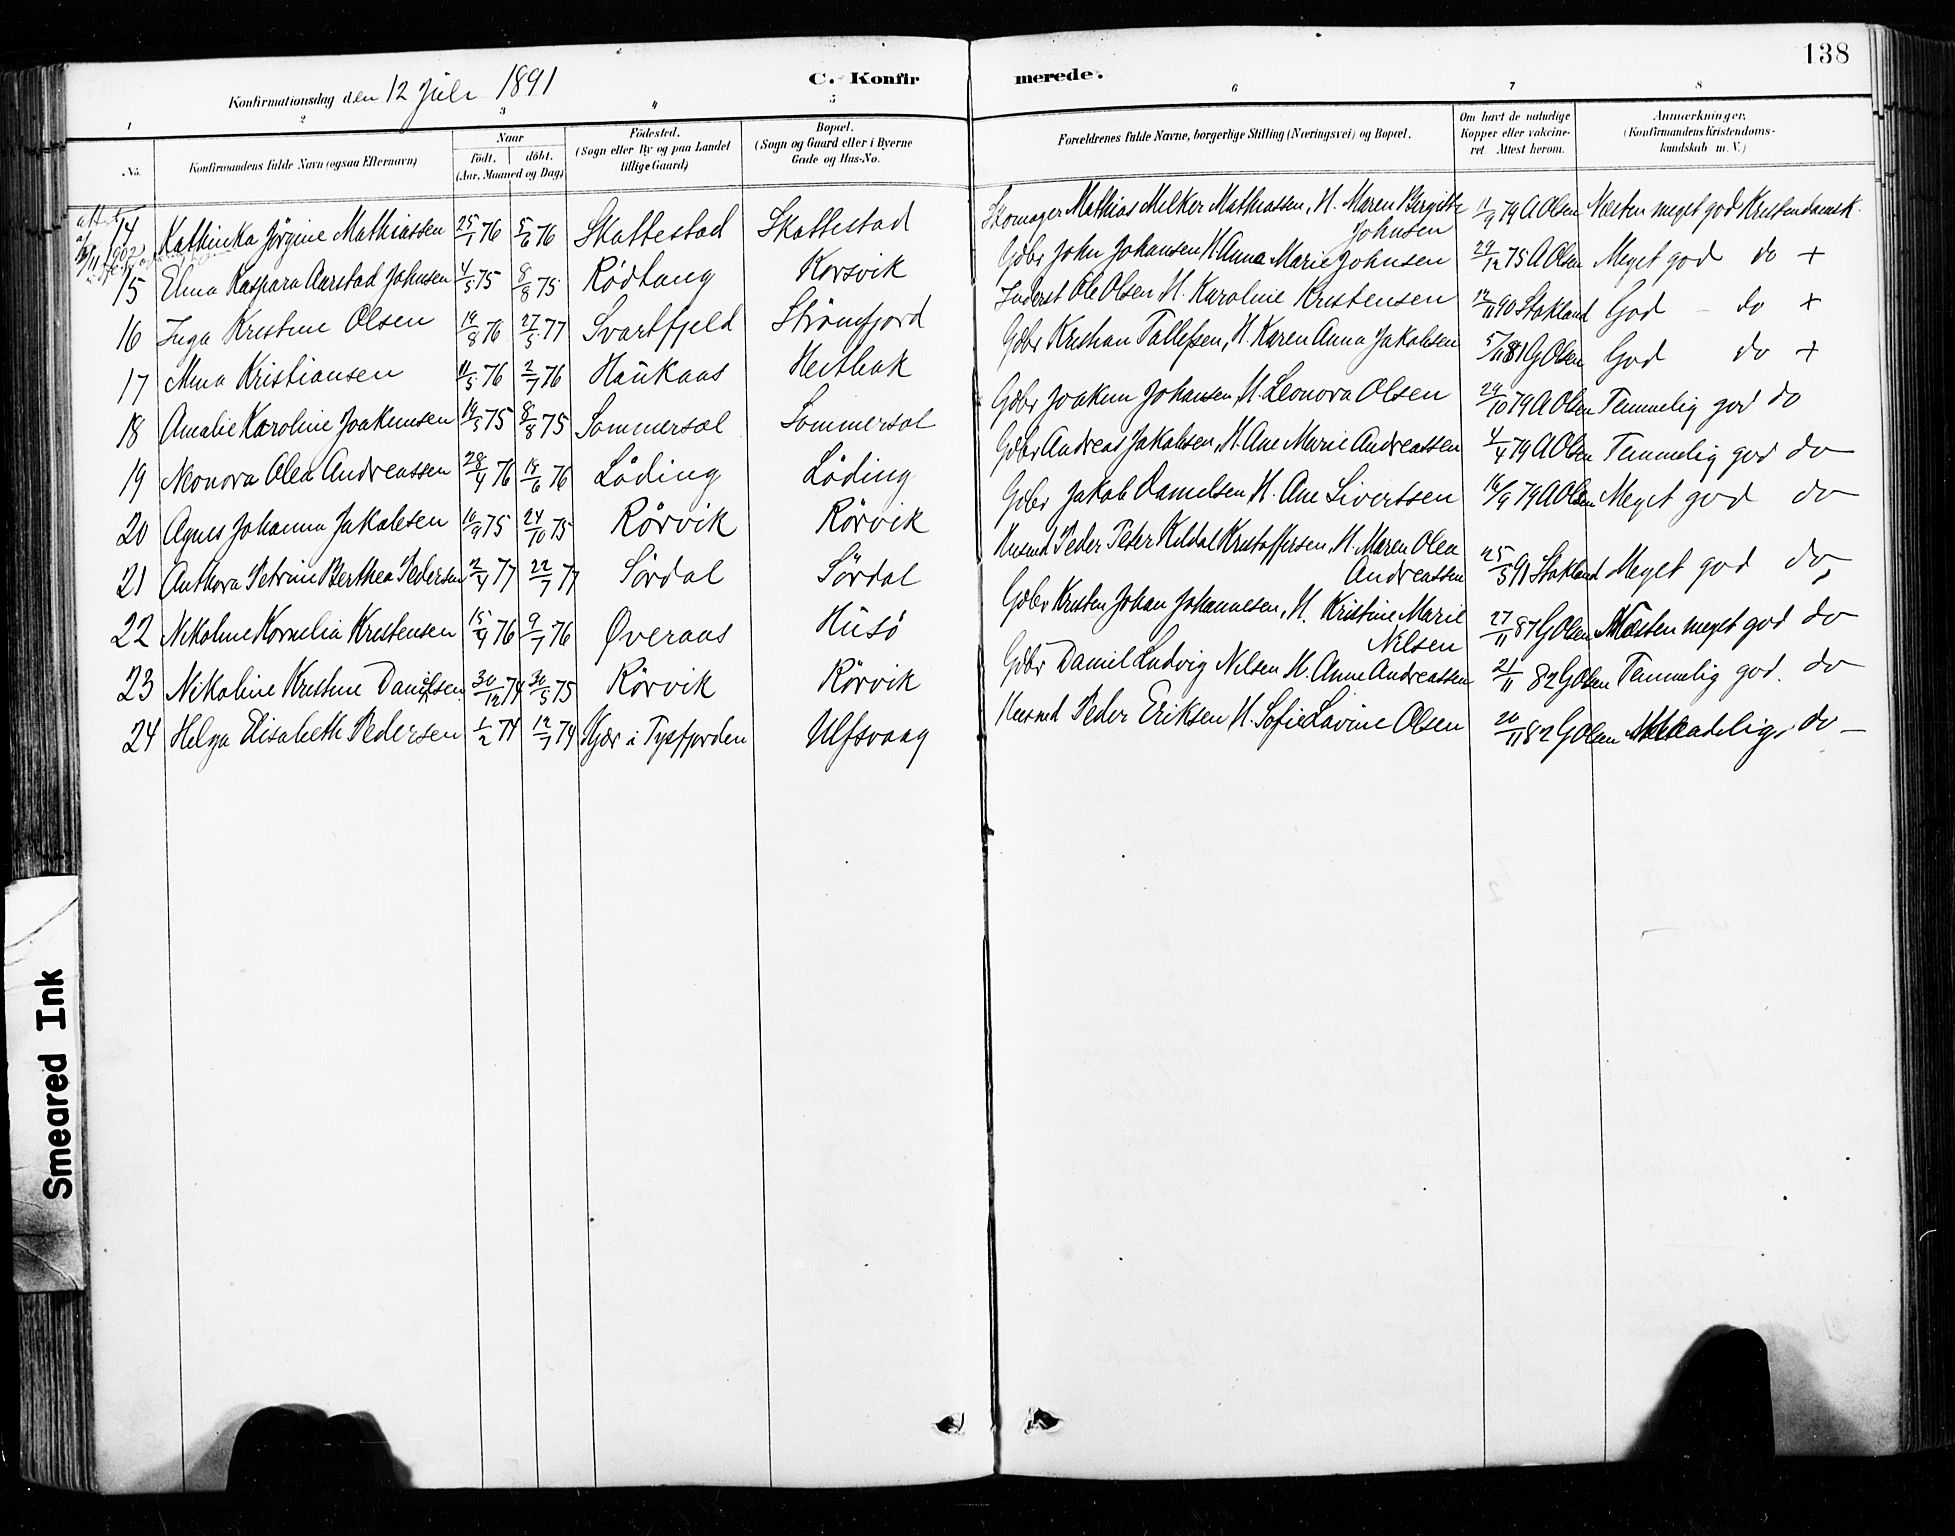 138
Konfirmationsdag den 12 Juli 1891
C. Konfirmerede.
1 2 3 4 5 6 7 8
No. Konfirmandens fulde Navn (ogsaa Efternavn) Naar født. døbt. (Aar, Maaned og Dag) Fødested. (Sogn eller By og paa Landet tillige Gaard) Bopæl. (Sogn og Gaard eller i Byerne Gade og Hus-No. Forældrenes fulde Navne, borgerlige Stilling (Næringsvei) og Bopæl. Om havt de naturlige Kopper eller vakcineret. Attest herom. Anmærkninger. (Konfirmandens Kristendomskundskab m. V.)
14 Kathinka Jørgine Mathiassen 25/1 76 5/6 76 Skottestad Skottestad Skomager Mathias Melker Mathiassen, H. Maren Birgitte Johnsen 11/9 79 A Olsen Næsten meget god Kristendomsk.
15 Elma Kaspara Aarstad Johnsen 4/5 75 8/8 75 Rødtang Korsvik Gdbr John Johansen H Anna Marie Johnsen 29/12 75 A Olsen Meget god do +
16 Inga Kristine Olsen 19/8 76 27/5 77 Svartfjeld Strømfjord Inderst Ole Olsen H. Karoline Kristensen 12/11 90 Stokland God do +
17 Mina Kristiansen 11/5 76 2/7 76 Haukaas Heitbak Gdbr Kristian Tollefsen, H. Karen Anna Jakobsen 5/11 81 G Olsen God do +
18 Amalie Karoline Joakimsen 19/5 75 8/8 75 Sommersel Sommersel Gdbr Joakim Johansen, H. Leonora Olsen 29/10 79 A Olsen Temmelig god do
19 Nonora Olea Andreassen 28/4 76 18/6 76 Løding Løding Gdbr Andreas Jakobsen, H. Ane Marie Andreassen 4/4 79 A Olsen Temmelig god do
20 Agnes Johanna Jakobsen 10/9 75 24/10 75 Rørvik Rørvik Gdbr Jakob Danielsen H. Ane Sivertsen 16/9 79 A Olsen Meget god do
21 Anthora Petrine Berthea Pedersen 2/4 77 22/7 77 Sørdal Sørdal Husmd Peder Peter Kildal Kristoffersen, H. Maren Olea Andreassen 25/5 91 Stokland Meget god do
22 Nikoline Kornelia Kristensen 15/4 76 9/7 76 Øveraas Husø Gdbr Kristen Johan Johannesen, H. Kristine Marie Nilsen 27/11 87 G Olsen Næsten meget god do
23 Nikoline Kristine Danielsen 30/12 74 30/5 75 Rørvik Rørvik Gdbr Daniel Ludvig Nilsen H. Anne Andreassen 21/11 82 G Olsen Temmelig god. do
24 Helga Elisabeth Pedersen 1/2 74 12/7 74 Kjær i Tysfjorden Ulfsvaag Husmd Peder Eriksen H. Sofie Lovine Olsen 20/11 82 G Olsen do
Smeared Ink